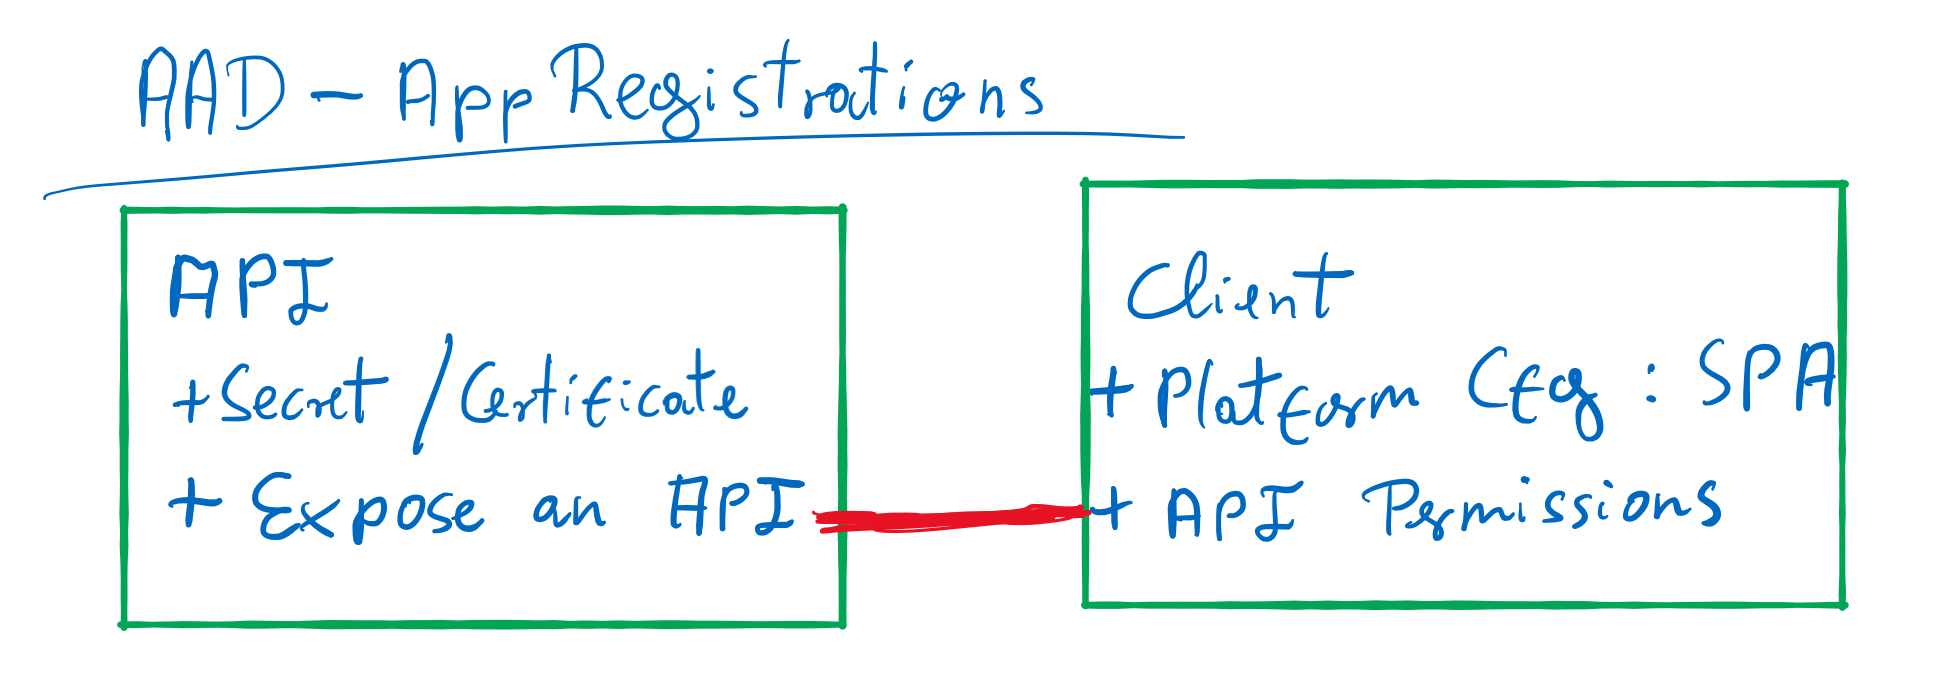 AAD - App Registrations
API
+ Secret / Certificate
+ Expose an API
Client
+ Platform Cfg : SPA
+ API Permissions